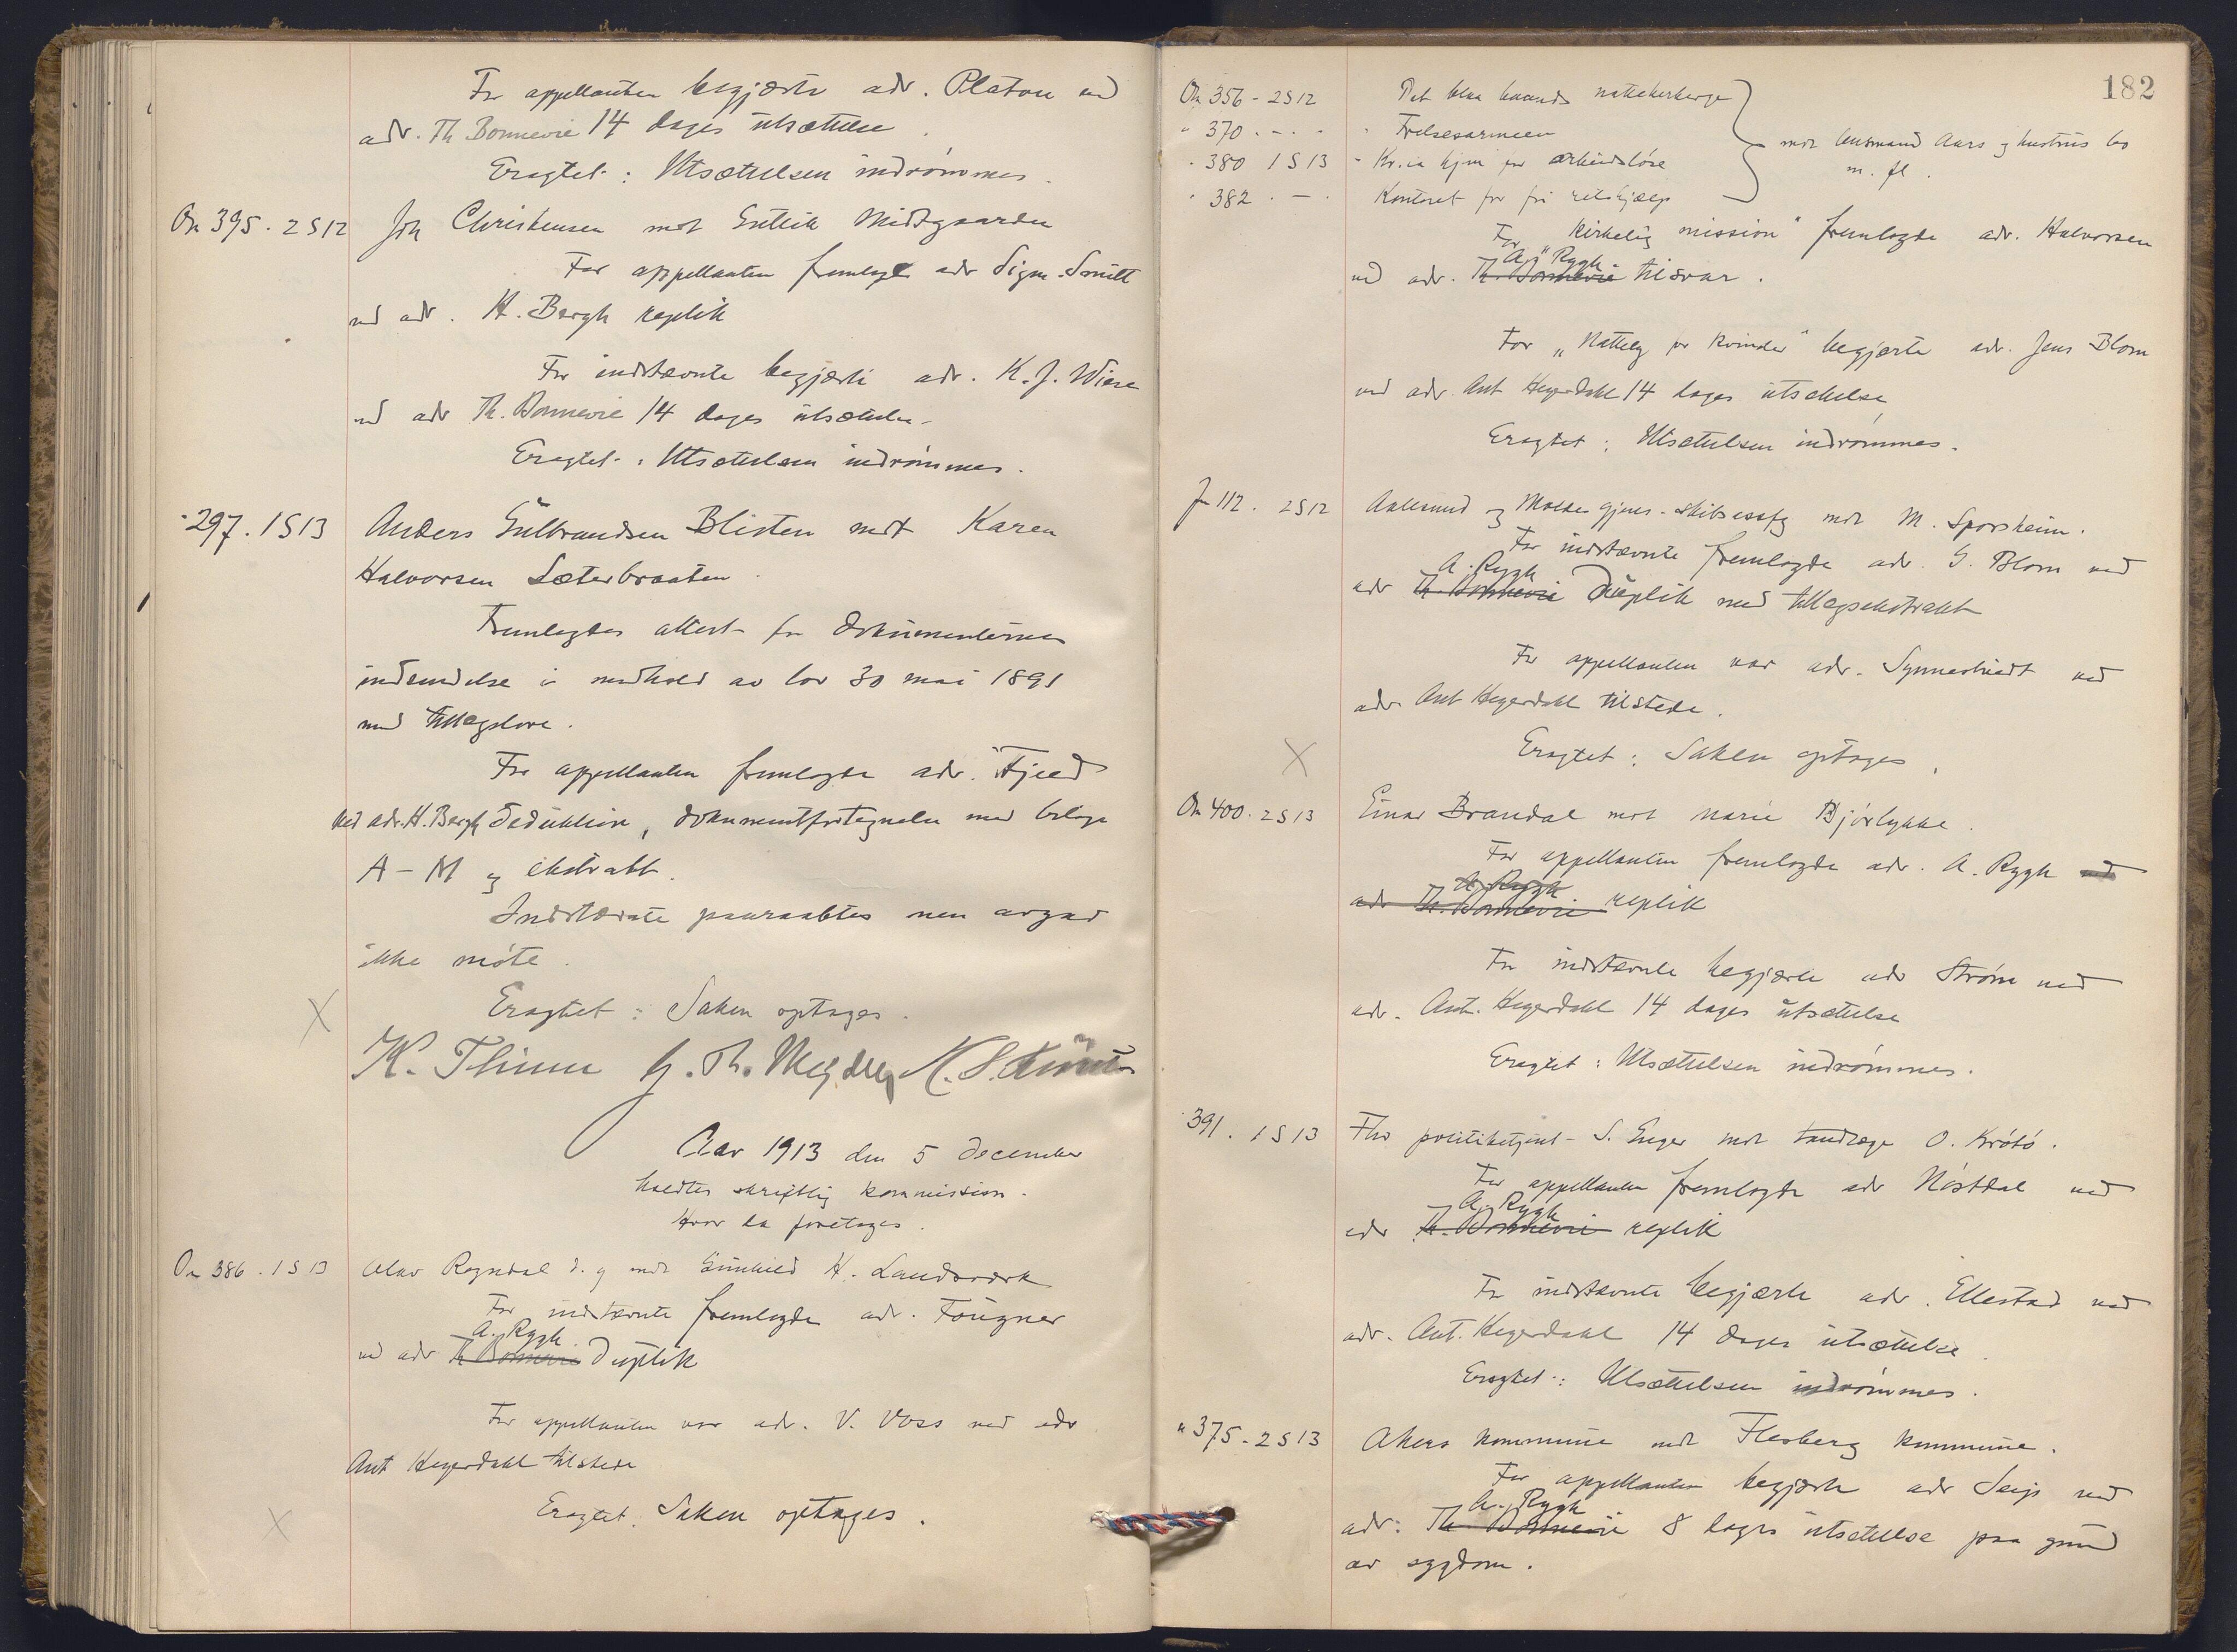 For appellanten begjærte adv. Platou ved
adv. Th Bonnevie 14 dages utsættelse.
Eragtet: Utsættelsen indrömmes.
On 395. 2 S 12 Joh Christensen mot Gullik Midtgaarden
For appellanten fremlagde adv Sigm. Smitt
ved adv. H. Bergh replik
For indstævnte begjærte adv. K. J. Wiese
ved adv Th. Bonnevie 14 dages utsættelse
Eragtet: Utsættelsen indrömmes.
" 297. 1 S 13 Anders Gulbrandsen Blisten mot Karen
Halvorsen Sæterbraaten.
Fremlagdes attest for dokumenternes
indsendelse i medhold av lov 30 mai 1891
med tillægslove.
For appellanten fremlagde adv. Fjeld
ved adv. H. Bergh deduktion, dokumentfortegnelse med bilage
A – M og ekstrakt.
Indstævnte paaraabtes men avgav
ikke möte.
X Eragtet: Saken optages.
K. Thinn
Aar 1913 den 5 december
holdtes skriftlig kommission.
Hvor da foretages.
On 386. 1 S 13 Olav Rogndal d. y mot Gunhild H. Landsværk
For indstævnte fremlagde adv. Fougner
A. Rygh
ved adv Th Bonnevie duplik
For appellanten var adv. V. Voss ved adv
Ant Hegerdahl tilstede
X Eragtet: Saken optages.
182
On 356 - 2 S 12 Det blaa baands natteherberge
" 370 . - . - Frelsesarmeen
" 380 1 S 13 - Kr.ia hjem for arbeidslöse
" 382 . - . Kontoret for fri retshjælp
mot lensmand Aars og hustrus bo
m. fl.
For "kirkelig mission" fremlagde adv. Halvorsen
A. Rygh
ved adv. Th. Bonnevie tilsvar.
For "Nattely for kvinder" begjærte adv. Jens Blom
ved adv. Ant Hegerdahl 14 dages utsættelse
Eragtet: Utsættelsen indrömmes.
J 112. 2 S 12 Aalesund og Molde gjens. skibsassfg mot M. Sporsheim.
For indstævnte fremlagde adv. G. Blom ved
A. Rygh
adv Th. Bonnevie duplik med tillægsekstrakt
For appellanten var adv. Synnestvedt ved
adv Ant Hegerdahl tilstede.
X Eragtet: Saken optages.
On 400. 2 S 13 Einar Brandal mot Marie Bjørlykke.
For appellanten fremlagde adv. A. Rygh ved
A. Rygh
adv Th. Bonnevie replik
For indstævnte begjærte adv Strøm ved
adv. Ant. Hegerdahl 14 dages utsættelse
Eragtet: Utsættelsen indrömmes.
" 391. 1 S 13 Fhv politibetjent S. Enger mot tandlæge O. Krötö.
For appellanten fremlagde adv Nöstdal ved
A. Rygh
adv Th. Bonnevie replik
For indstævnte begjærte adv. Ellestad ved
adv. Ant. Hegerdahl 14 dages utsættelse.
Eragtet: Utsættelsen indrömmes.
" 375. 2 S 13 Akers kommune mot Flesberg kommune.
For appellanten begjærte adv Seip ved
A. Rygh
adv: Th. Bonnevie 8 dages utsættelse paa grund
av sygdom.